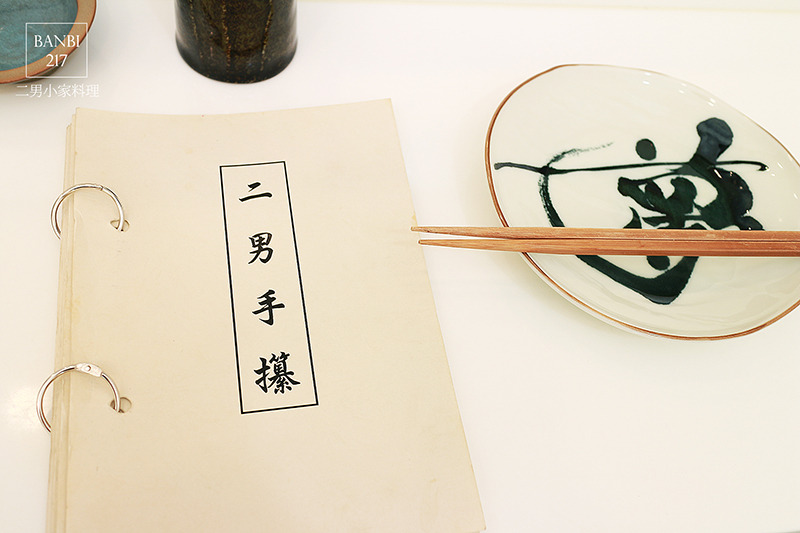 BANBI
217
二男小家料理
二男手攥